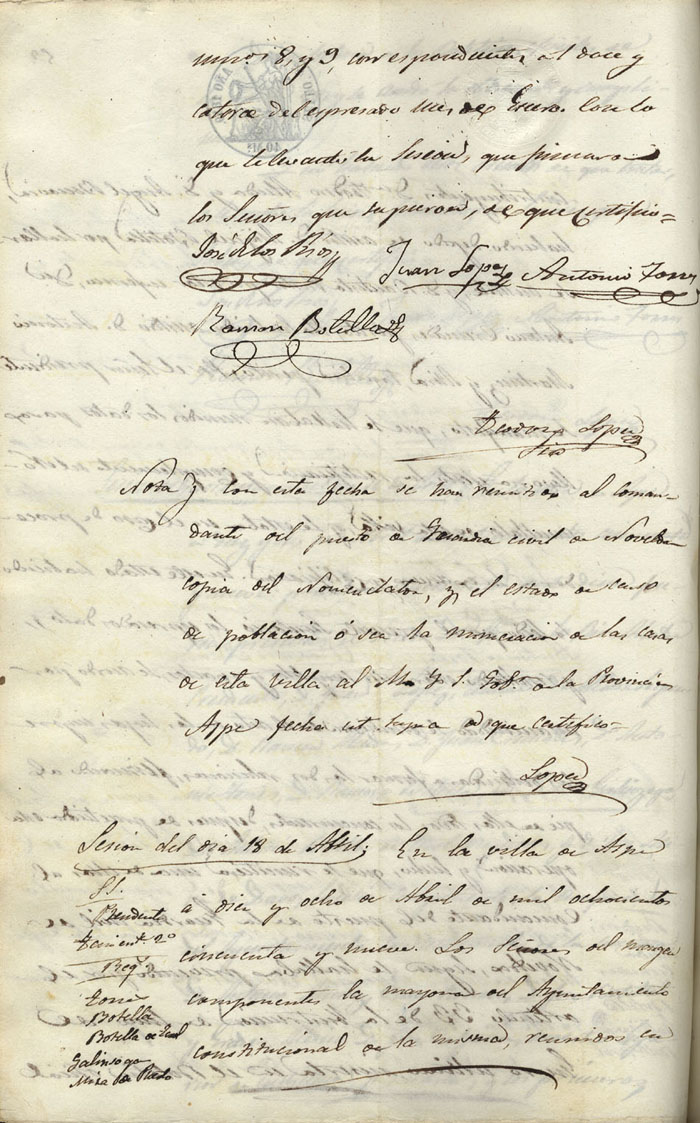 numos 8, y 9, correspondientes al doce y
catorce del espresado mes de Enero. Con lo
que se levantó la Sesion, que firmaron
los Señores que supieron, de que certifico=
José de los Rios
Juan Lopez
Antonio Torres
Ramon Botella
Teodoro Lopez
Srio
Nota y con esta fecha se han remitido al coman-
dante del puesto de Guardia civil de Novelda
copia del Nomenclator, y el estado de censo
de poblacion ó sea la numeracion de las casas
de esta villa al M. Y. S. Gobr. de la Provincia
Aspe fecha ut supra de que certifico=
Lopez
Sesion del dia 18 de Abril; En la villa de Aspe
SS.
Presidente
Tenient. 2º
Regs.
Torres
Botella
Botella de
Galinsoga
Mira de Prado
á diez y ocho de Abril de mil ochocientos
cincuenta y nueve. Los Señores del margen
componentes la mayoria del Ayuntamiento
constitucional de la misma, reunidos en